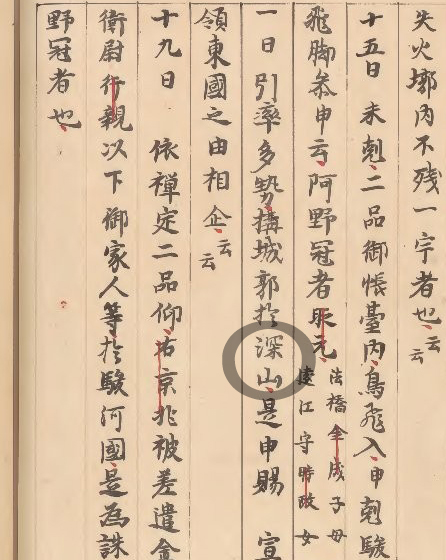 失火墎内不残一宇者也云云
十五日 未剋二品御帳臺内鳥飛入申剋駿
飛脚参申云阿野冠者時元法橋全成子母
遠江守時政女
一日引率多勢搆城郭於深山是申賜 宣
領東國之由相企云云
十九日 依禅定二品仰右京兆被差遣金
衛尉行親以下御家人等於駿河國是為誅
野冠者也